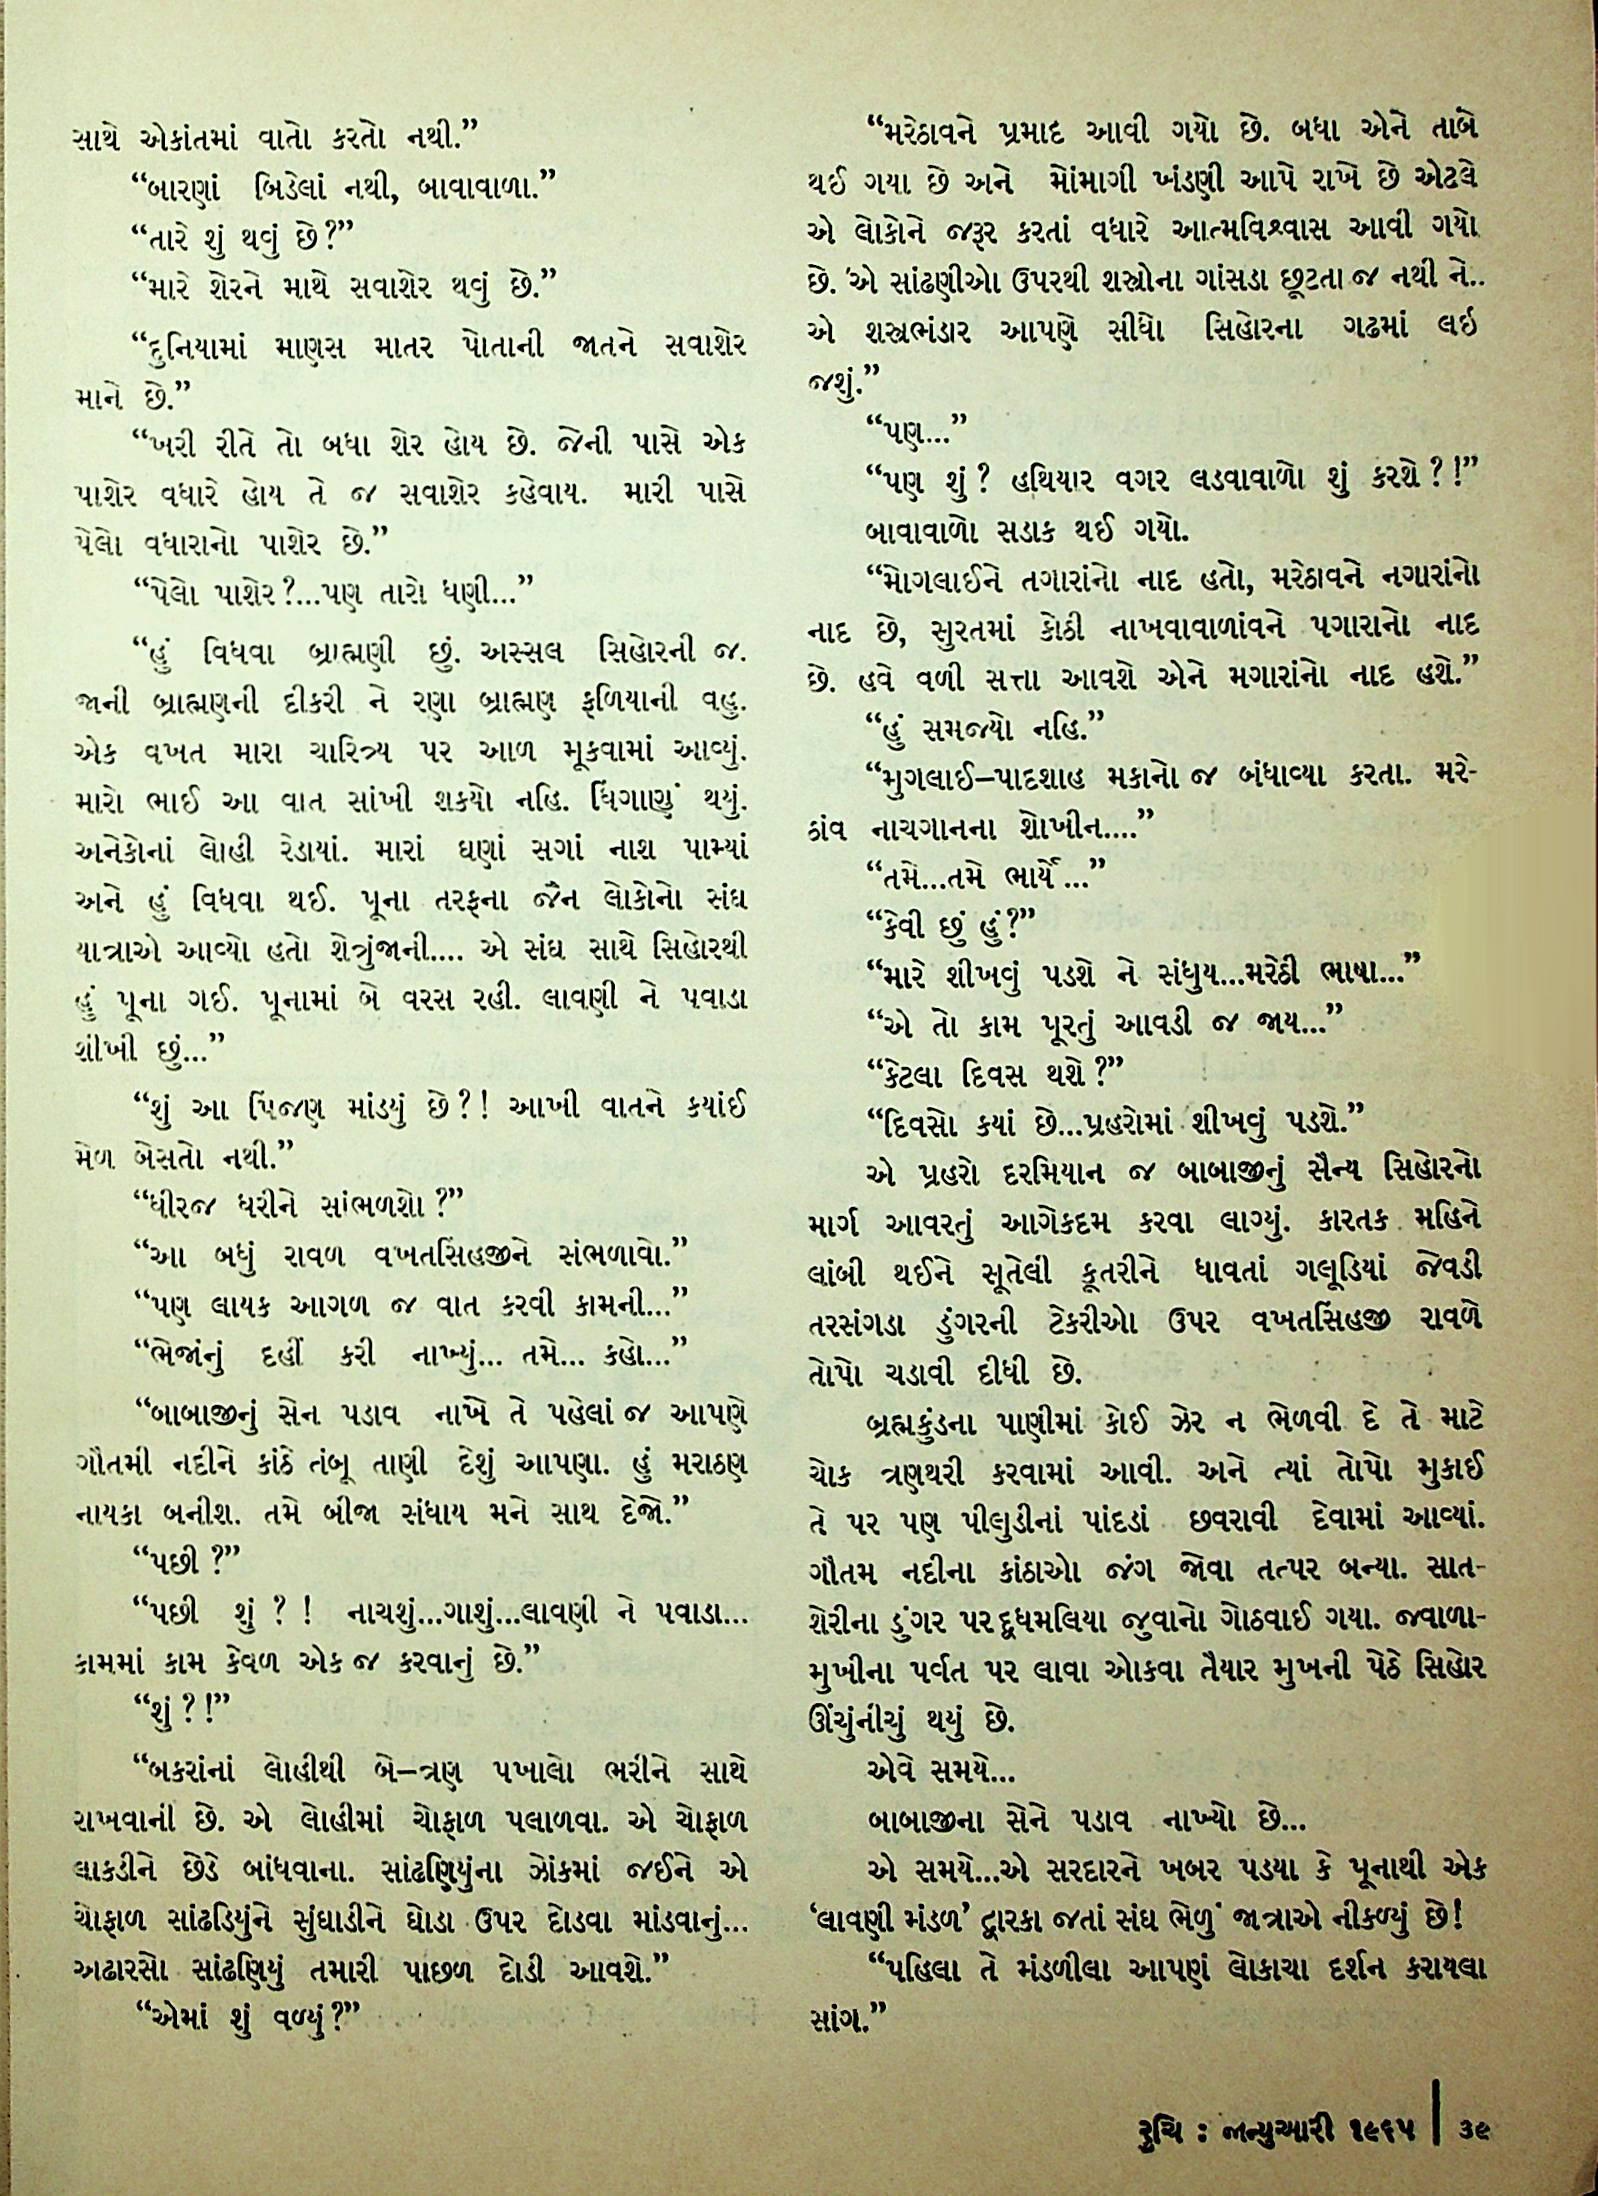 સાથે એકાંતમાં વાતો કરતો નથી.”
“બારણાં બિડેલાં નથી, બાવાવાળા.”
“તારે શું થવું છે?”
“મારે શેરને માથે સવાશેર થવું છે.”
“દુનિયામાં માણસ માતર પોતાની જાતને સવાશેર
માને છે.”
“ખરી રીતે તો બધા શેર હોય છે. જેની પાસે એક
પાશેર વધારે હોય તે જ સવાશેર કહેવાય. મારી પાસે
પેલો વધારાનો પાશેર છે.”
“પેલો પાશેર?...પણ તારો ધણી...”
“હું વિધવા બ્રાહ્મણી છું. અસ્સલ સિહોરની જ.
જાની બ્રાહ્મણની દીકરી ને રણા બ્રાહ્મણ ફળિયાની વહુ.
એક વખત મારા ચારિત્ર્ય પર આળ મૂકવામાં આવ્યું.
મારો ભાઈ આ વાત સાંખી શકયો નહિ. ધિંગાણું થયું.
અનેકોનાં લોહી રેડાયાં. મારાં ઘણાં સગાં નાશ પામ્યાં
અને હું વિધવા થઈ. પૂના તરફના જૈન લોકોનો સંઘ
યાત્રાએ આવ્યો હતો શેત્રુંજાની.... એ સંઘ સાથે સિહોરથી
હું પૂના ગઈ. પૂનામાં બે વરસ રહી. લાવણી ને પવાડા
શીખી છું...”
“શું આ પિંજણ માંડયું છે?! આખી વાતને કયાંઈ
મેળ બેસતો નથી.”
“ધીરજ ધરીને સાંભળશો?”
“આ બધું રાવળ વખતસિંહજીને સંભળાવો.”
“પણ લાયક આગળ જ વાત કરવી કામની...”
“ભેજાંનું દહીં કરી નાખ્યું... તમે... કહો...”
“બાબાજીનું સેન પડાવ નાખે તે પહેલાં જ આપણે
ગૌતમી નદીને કાંઠે તંબૂ તાણી દેશું આપણા. હું મરાઠણ
નાયકા બનીશ. તમે બીજા સંધાય મને સાથ દેજો.”
“પછી?”
“પછી શું?! નાચશું...ગાશું...લાવણી ને પવાડા...
કામમાં કામ કેવળ એક જ કરવાનું છે.”
“શું?!”
“બકરાંનાં લોહીથી બે–ત્રણ પખાલો ભરીને સાથે
રાખવાની છે. એ લોહીમાં ચોફાળ પલાળવા. એ ચોફાળ
લાકડીને છેડે બાંધવાના. સાંઢણિયુંના ઝોંકમાં જઈને એ
ચોફાળ સાંઢડિયુંને સુંઘાડીને ઘોડા ઉપર દોડવા માંડવાનું...
અઢારસો સાંઢણિયું તમારી પાછળ દોડી આવશે.”
“એમાં શું વળ્યું?”
“મરેઠાવને પ્રમાદ આવી ગયો છે. બધા એને તાબે
થઈ ગયા છે અને મોંમાગી ખંડણી આપે રાખે છે એટલે
એ લોકોને જરૂર કરતાં વધારે આત્મવિશ્વાસ આવી ગયો
છે. એ સાંઢણીઓ ઉપરથી શસ્ત્રોના ગાંસડા છૂટતા જ નથી ને..
એ શસ્ત્રભંડાર આપણે સીધો સિહોરના ગઢમાં લઇ
જશું.”
“પણ...”
“પણ શું? હથિયાર વગર લડવાવાળો શું કરશે?!”
બાવાવાળો સડાક થઈ ગયો.
“મોગલાઈને તગારાંનો નાદ હતો, મરેઠાવને નગારાંનો
નાદ છે, સુરતમાં કોઠી નાખવાવાળાંવને પગારાનો નાદ
છે. હવે વળી સત્તા આવશે એને મગારાંનો નાદ હશે.”
“હું સમજ્યો નહિ.”
“મુગલાઈ–પાદશાહ મકાનો જ બંધાવ્યા કરતા. મરે-
ઠાંવ નાચગાનના શોખીન....”
“તમે...તમે ભાર્યે...”
“કેવી છું હું?”
“મારે શીખવું પડશે ને સંધુય...મરેઠી ભાષા...”
“એ તો કામ પૂરતું આવડી જ જાય...”
“કેટલા દિવસ થશે?”
“દિવસો કયાં છે...પ્રહરોમાં શીખવું પડશે.”
એ પ્રહરો દરમિયાન જ બાબાજીનું સૈન્ય સિહોરનો
માર્ગ આવરતું આગેકદમ કરવા લાગ્યું. કારતક મહિને
લાંબી થઈને સૂતેલી કૂતરીને ધાવતાં ગલૂડિયાં જેવડી
તરસંગડા ડુંગરની ટેકરીઓ ઉપર વખતસિંહજી રાવળે
તોપો ચડાવી દીધી છે.
બ્રહ્મકુંડના પાણીમાં કોઈ ઝેર ન ભેળવી દે તે માટે
ચોક ત્રણથરી કરવામાં આવી. અને ત્યાં તોપો મુકાઈ
તે પર પણ પીલુડીનાં પાંદડાં છવરાવી દેવામાં આવ્યાં.
ગૌતમ નદીના કાંઠાઓ જંગ જોવા તત્પર બન્યા. સાત-
શેરીના ડુંગર પર દૂધમલિયા જુવાનો ગોઠવાઈ ગયા. જ્વાળા-
મુખીના પર્વત પર લાવા ઓકવા તૈયાર મુખની પેઠે સિહોર
ઊંચુંનીચું થયું છે.
એવે સમયે...
બાબાજીના સેને પડાવ નાખ્યો છે...
એ સમયે...એ સરદારને ખબર પડયા કે પૂનાથી એક
‘લાવણી મંડળ’ દ્વારકા જતાં સંઘ ભેળું જાત્રાએ નીકળ્યું છે!
“પહિલા તે મંડળીલા આપણં લોકાચા દર્શન કરાયલા
સાંગ.”
રુચિ : જાન્યુઆરી ૧૯૬૫ | ૩૯